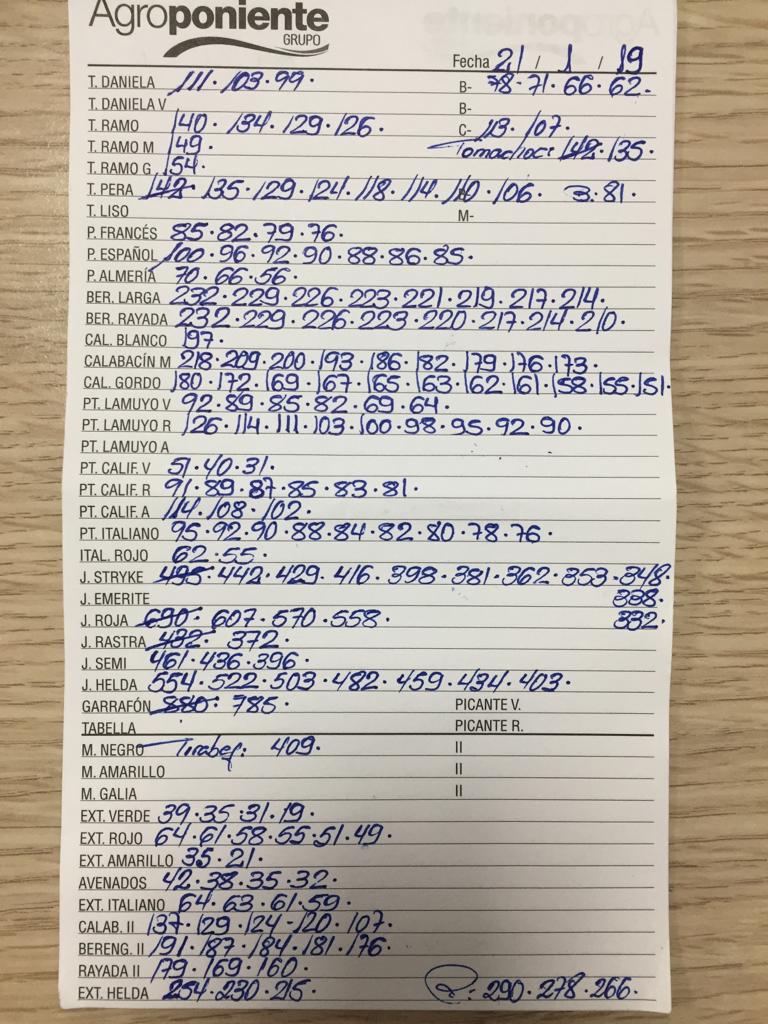 Agroponiente
GRUPO
Fecha 21 / 1 / 19
T. DANIELA 111. 103. 99. B- 78. 71. 66. 62.
T. DANIELA V B-
T. RAMO 140. 134. 129. 126. C- 113. 107.
T. RAMO M 149. 142. 135.
T. RAMO G 154.
T. PERA 142. 135. 129. 124. 118. 114. 110. 106. B: 81.
T. LISO M-
P. FRANCÉS 85. 82. 79. 76.
P. ESPAÑOL 100. 96. 92. 90. 88. 86. 85.
P. ALMERÍA 70. 66. 56.
BER. LARGA 232. 229. 226. 223. 221. 219. 217. 214.
BER. RAYADA 232. 229. 226. 223. 220. 217. 214. 210.
CAL. BLANCO 197.
CALABACÍN M 218. 209. 200. 193. 186. 182. 179. 176. 173.
CAL. GORDO 180. 172. 169. 167. 165. 163. 162. 161. 158. 155. 151.
PT. LAMUYO V 92. 89. 85. 82. 69. 64.
PT. LAMUYO R 126. 114. 111. 103. 100. 98. 95. 92. 90.
PT. LAMUYO A
PT. CALIF. V 51. 40. 31.
PT. CALIF. R 91. 89. 87. 85. 83. 81.
PT. CALIF. A 114. 108. 102.
PT. ITALIANO 95. 92. 90. 88. 84. 82. 80. 78. 76.
ITAL. ROJO 62. 55.
J. STRYKE 495: 442. 429. 416. 398. 381. 362. 353. 348.
J. EMERITE 338.
J. ROJA 690: 607. 570. 558. 332.
J. RASTRA 432: 372.
J. SEMI 461. 436. 396.
J. HELDA 554. 522. 503. 482. 459. 434. 403.
GARRAFÓN 880: 785. PICANTE V.
TABELLA PICANTE R.
M. NEGRO Tirabeq: 409. II
M. AMARILLO II
M. GALIA II
EXT. VERDE 39. 35. 31. 19.
EXT. ROJO 64. 61. 58. 55. 51. 49.
EXT. AMARILLO 35. 21.
AVENADOS 42. 38. 35. 32.
EXT. ITALIANO 64. 63. 61. 59.
CALAB. II 137. 129. 124. 120. 107.
BERENG. II 191. 187. 184. 181. 176.
RAYADA II 179. 169. 160.
EXT. HELDA 254. 230. 215. 290. 278. 266.